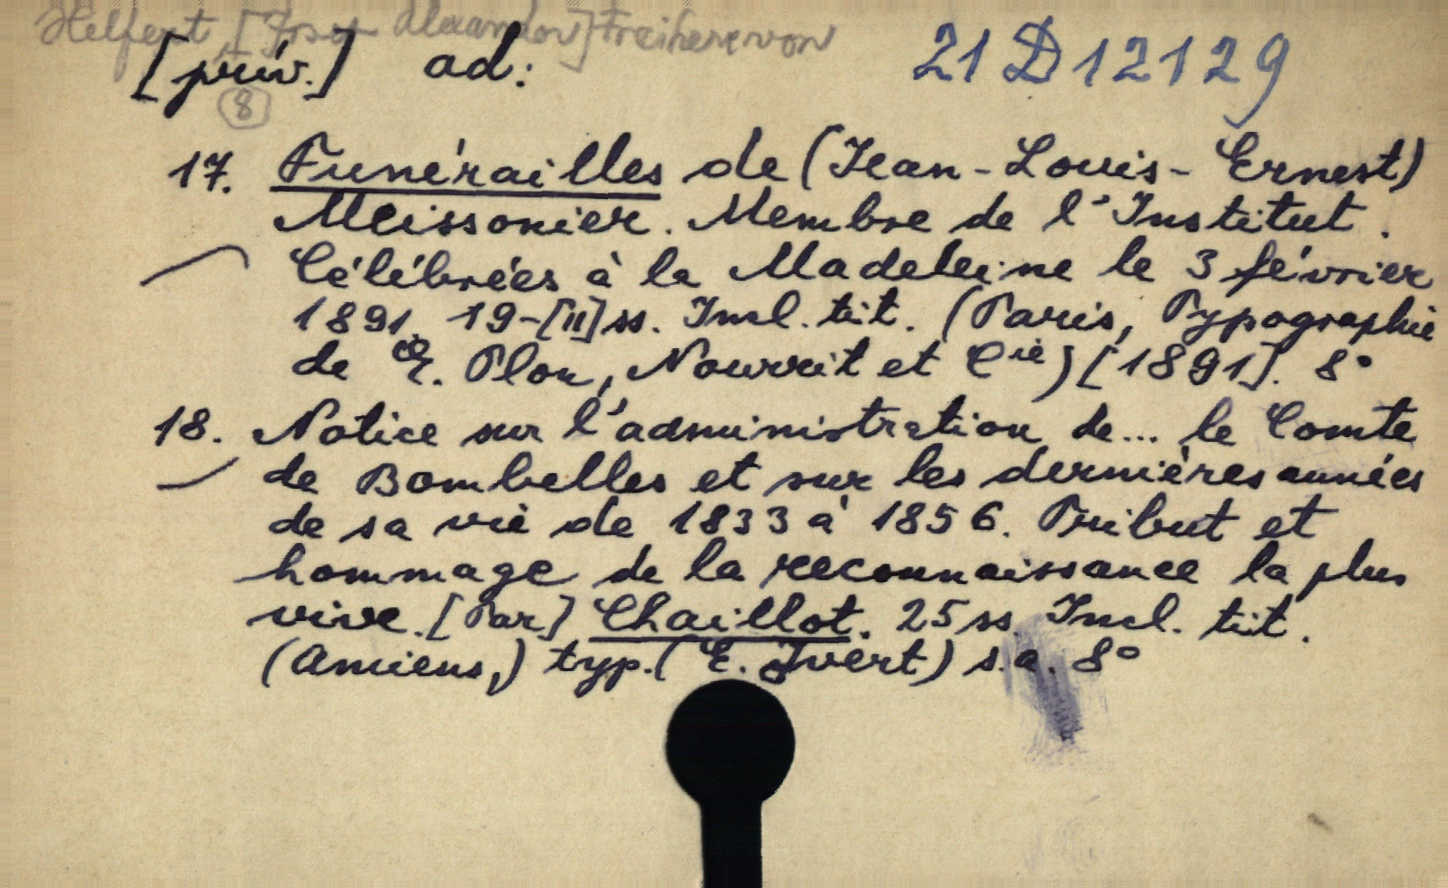 Helfert, [Josef Alexander] Freiherr von
[priv.] ad: 21 D 12129
8
17. Funérailles de (Jean-Louis-Ernest)
Meissonier. Membre de l'Institut.
Célébrées à la Madeleine le 3 février
1891. 19-[II] ss. Incl. tit. (Paris, Typographie
de E. Plon, Nourrit et Cie) [1891]. 8°
18. Notice sur l'administration de... le Comte
de Bombelles et sur les dernières années
de sa vie de 1833 à 1856. Tribut et
hommage de la reconnaissance la plus
vive. [Par] Chaillot. 25 ss. Incl. tit.
(Amiens,) typ. (E. Yvert) s.a. 8°